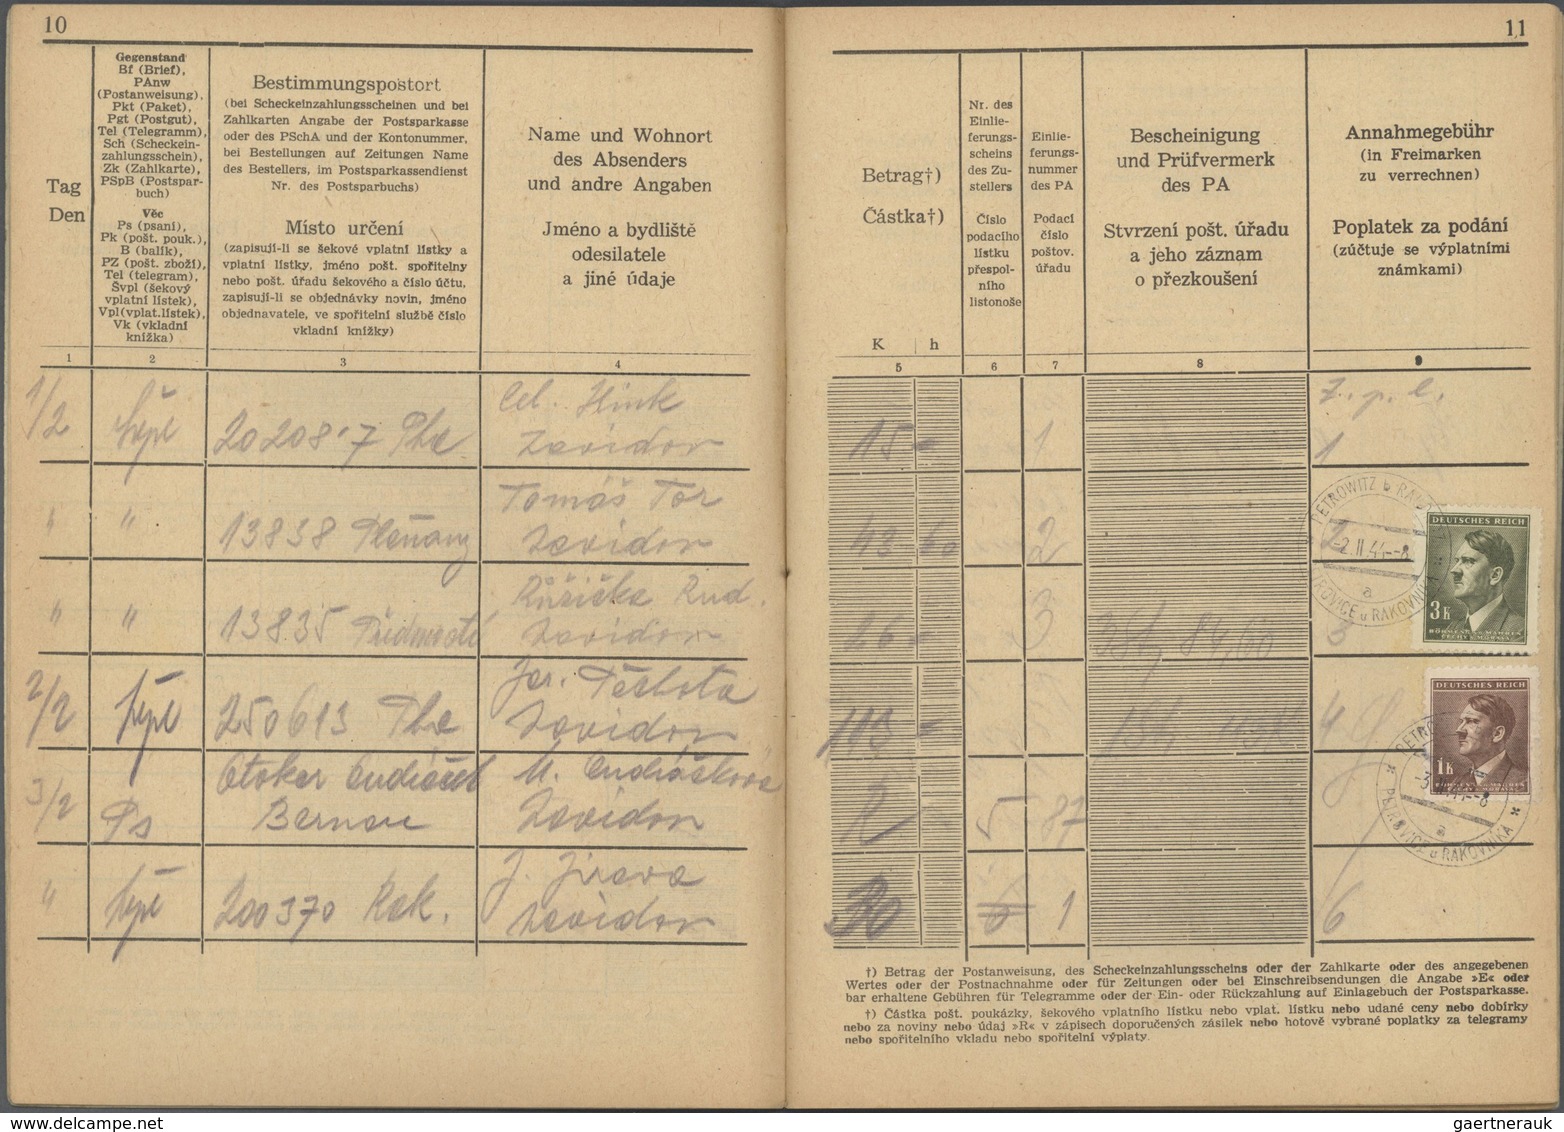 10
Tag
Den
Gegenstand
Bf (Brief),
PAnw
(Postanweisung),
Pkt (Paket),
Pgt (Postgut),
Tel (Telegramm),
Sch (Scheckein-
zahlungsschein),
Zk (Zahlkarte),
PSpB (Postspar-
buch)
Věc
Ps (psaní),
Pk (pošt. pouk.),
B (balík),
PZ (pošt. zboží),
Tel (telegram),
Švpl (šekový
vplatní lístek),
Vpl(vplat.lístek),
Vk (vkladní
knížka)
Bestimmungspostort
(bei Scheckeinzahlungsscheinen und bei
Zahlkarten Angabe der Postsparkasse
oder des PSchA und der Kontonummer,
bei Bestellungen auf Zeitungen Name
des Bestellers, im Postsparkassendienst
Nr. des Postsparbuchs)
Místo určení
(zapisují-li se šekové vplatní lístky a
vplatní lístky, jméno pošt. spořitelny
nebo pošt. úřadu šekového a číslo účtu,
zapisují-li se objednávky novin, jméno
objednavatele, ve spořitelní službě číslo
vkladní knížky)
Name und Wohnort
des Absenders
und andre Angaben
Jméno a bydliště
odesilatele
a jiné údaje
1
2
3
4
1/2
202087
Zavidov
"
"
13838
Tomáš
Zavidov
"
"
13835
Růžička Rud.
Zavidov
2/2
250613
Zavidov
3/2
Ps
Zavidov
"
200370 Rak.
Zavidov
11
Betrag†)
Částka†)
K
h
Nr. des
Einlie-
ferungs-
scheins
des Zu-
stellers
Číslo
podacího
lístku
přespol-
ního
listonoše
Einlie-
ferungs-
nummer
des PA
Podací
číslo
poštov.
úřadu
Bescheinigung
und Prüfvermerk
des PA
Stvrzení pošt. úřadu
a jeho záznam
o přezkoušení
Annahmegebühr
(in Freimarken
zu verrechnen)
Poplatek za podání
(zúčtuje se výplatními
známkami)
5
6
7
8
9
15
1
1
43 60
2
2
26
3
84,60
3
113
4
R
5
87
30
6
1
6
PETROWITZ b RAKO
-2.II.44--8
a
PETROVICE u RAKOVNÍKA
DEUTSCHES REICH
3 K
BÖHMEN UND MÄHREN
ČECHY A MORAVA
DEUTSCHES REICH
1 K
BÖHMEN UND MÄHREN
ČECHY A MORAVA
-3.II.44--8
a
PETROVICE u RAKOVNÍKA
†) Betrag der Postanweisung, des Scheckeinzahlungsscheins oder der Zahlkarte oder des angegebenen
Wertes oder der Postnachnahme oder für Zeitungen oder bei Einschreibsendungen die Angabe »E« oder
bar erhaltene Gebühren für Telegramme oder der Ein- oder Rückzahlung auf Einlagebuch der Postsparkasse.
†) Částka pošt. poukázky, šekového vplatního lístku nebo vplat. lístku nebo udané ceny nebo dobírky
nebo za noviny nebo údaj »R« v zápisech doporučených zásilek nebo hotově vybrané poplatky za telegramy
nebo spořitelního vkladu nebo spořitelní výplaty.
gaertnerauk